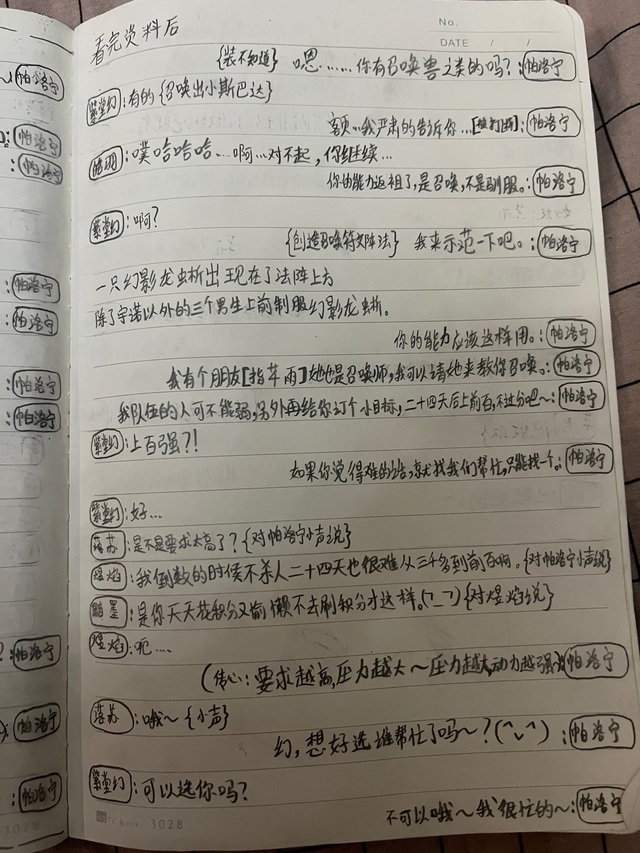 看完资料后
No.
DATE / /
{装不知道} 嗯……你有召唤兽之类的吗?:帕洛宁
紫堂幻:有的{召唤出小斯巴达}
额…我严肃的告诉你…[被打断]:帕洛宁
噗哈哈哈…啊…对不起,你继续…
你的能力返祖了,是召唤,不是驯服。:帕洛宁
紫堂幻:啊?
{创造召唤符文阵法} 我来示范一下吧。:帕洛宁
一只幻影龙蜥出现在了法阵上方
除了守诺以外的三个男生上前制服幻影龙蜥。
你的能力应该这样用。:帕洛宁
我有个朋友[指苹雨]她也是召唤师,我可以请她来教你召唤。:帕洛宁
我队伍的人可不能弱,另外再给你订个小目标,二十四天后上前百,不过分吧~:帕洛宁
紫堂幻:上百强?!
如果你觉得难的话,就找我们帮忙,只能找一个。:帕洛宁
紫堂幻:好…
落苏:是不是要求太高了?{对帕洛宁小声说}
煜焰:我倒数的时候不杀人二十四天也很难从三千多到前百啊。{对帕洛宁小声说}
墨:是你天天花积分又偷懒不去刷积分才这样。(¬_¬){对煜焰说}
煜焰:呃…
(传心:要求越高,压力越大~压力越大,动力越强:帕洛宁
落苏:哦~{小声}
幻,想好选谁帮忙了吗~?(^v^):帕洛宁
紫堂幻:可以选你吗?
不可以哦~我很忙的~:帕洛宁
3028
:帕洛宁
:帕洛宁
:帕洛宁
:帕洛宁
:帕洛宁
:帕洛宁
:帕洛宁
:帕洛宁
:帕洛宁
:帕洛宁